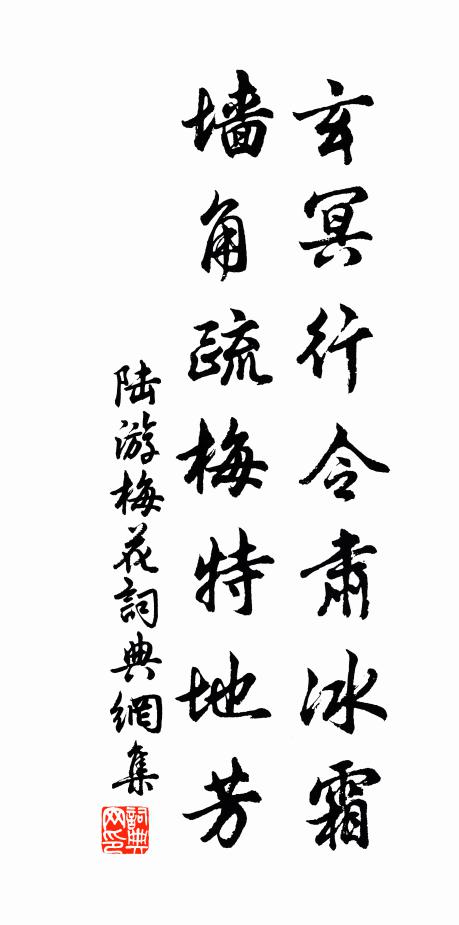 玄冥行令肃冰霜
墙角疏梅特地芳
陆游梅花詞典網集
詞典
网印